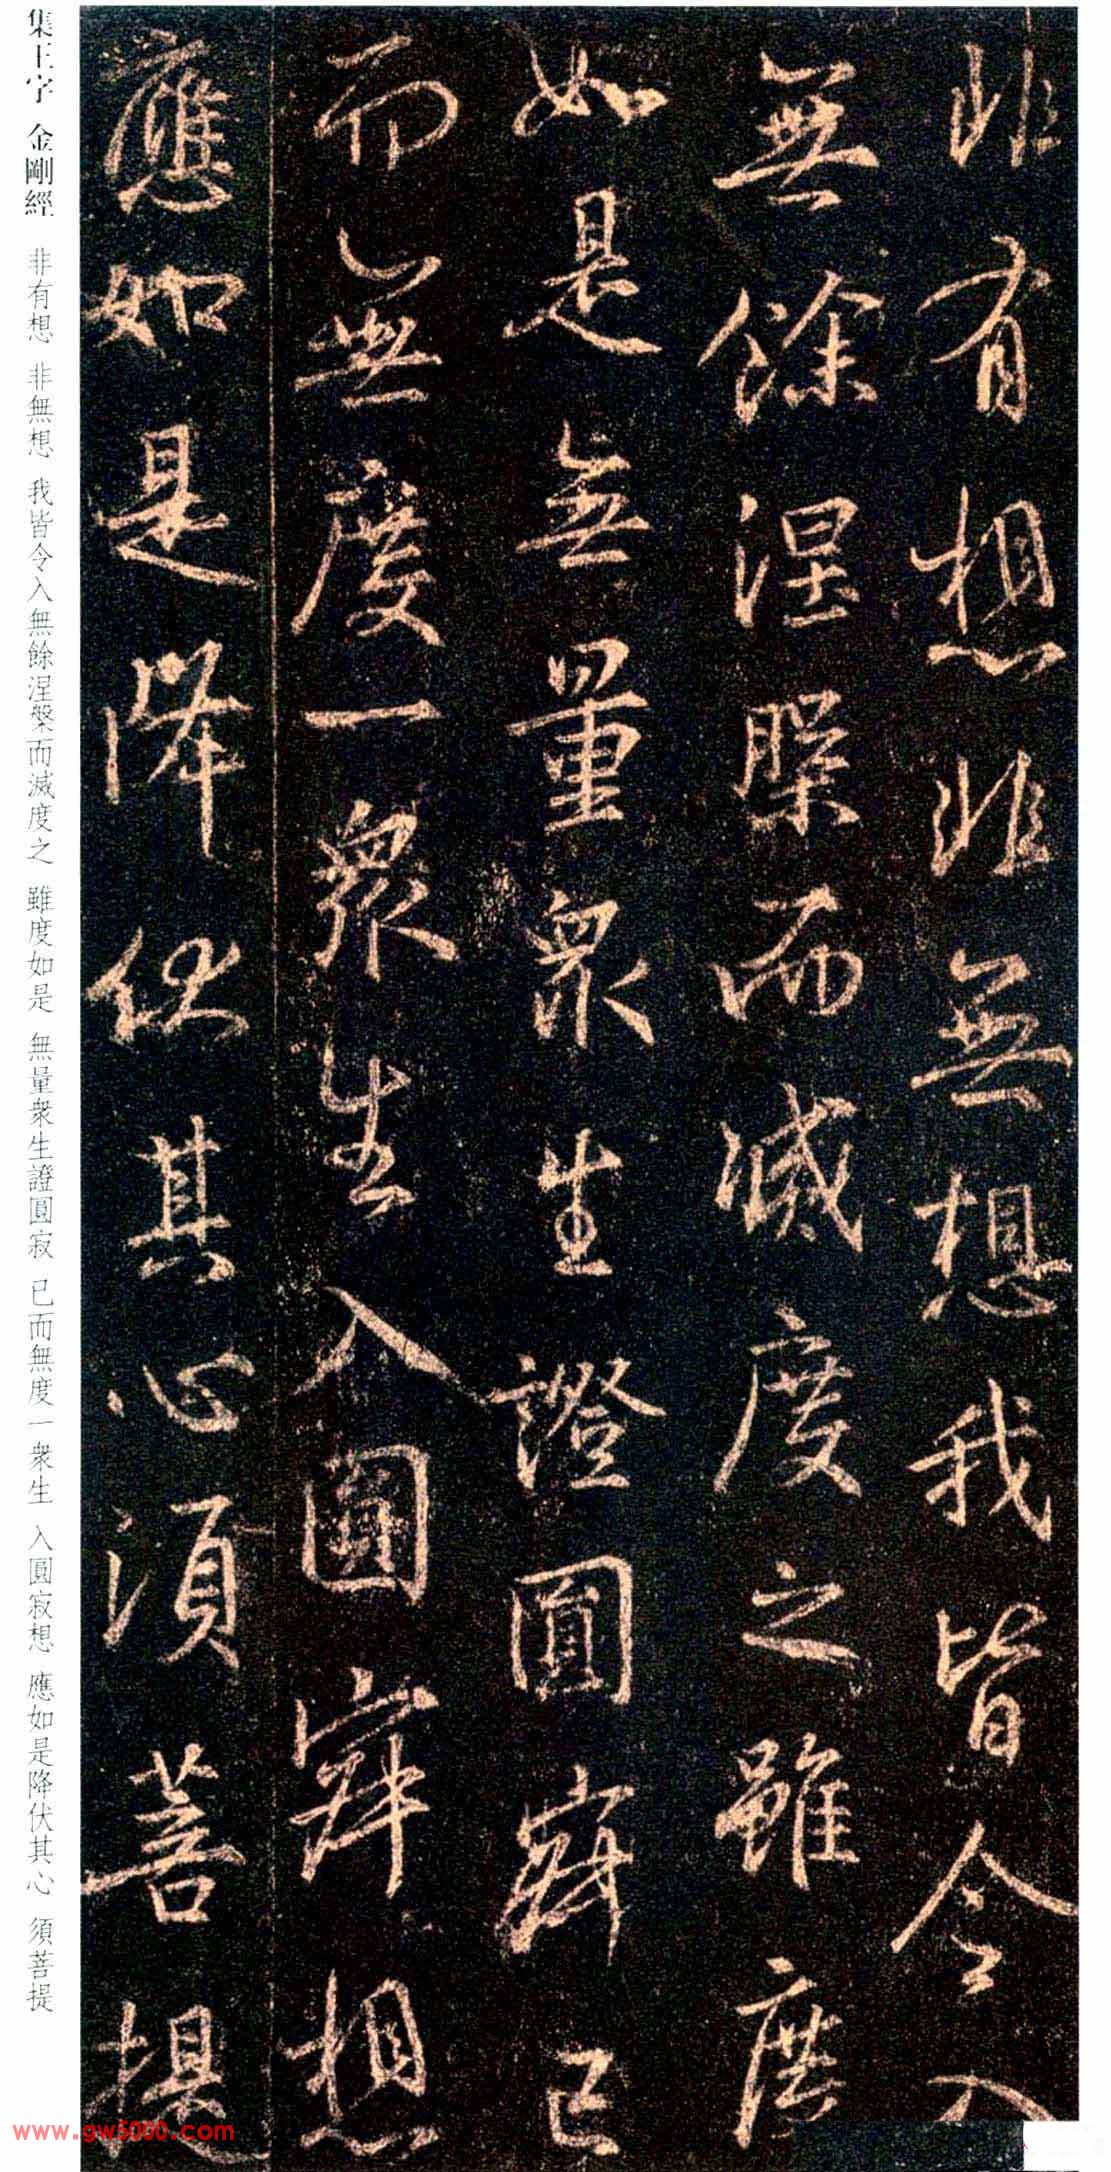 非有想非無想我皆令入
無餘涅槃而滅度之雖度
如是無量衆生證圓寂已
而無度一衆生入圓寂想
應如是降伏其心須菩提
集王字 金剛經 非有想 非無想 我皆令入無餘涅槃而滅度之 雖度如是 無量衆生證圓寂 已而無度一衆生 入圓寂想 應如是降伏其心 須菩提
www.gw5000.com